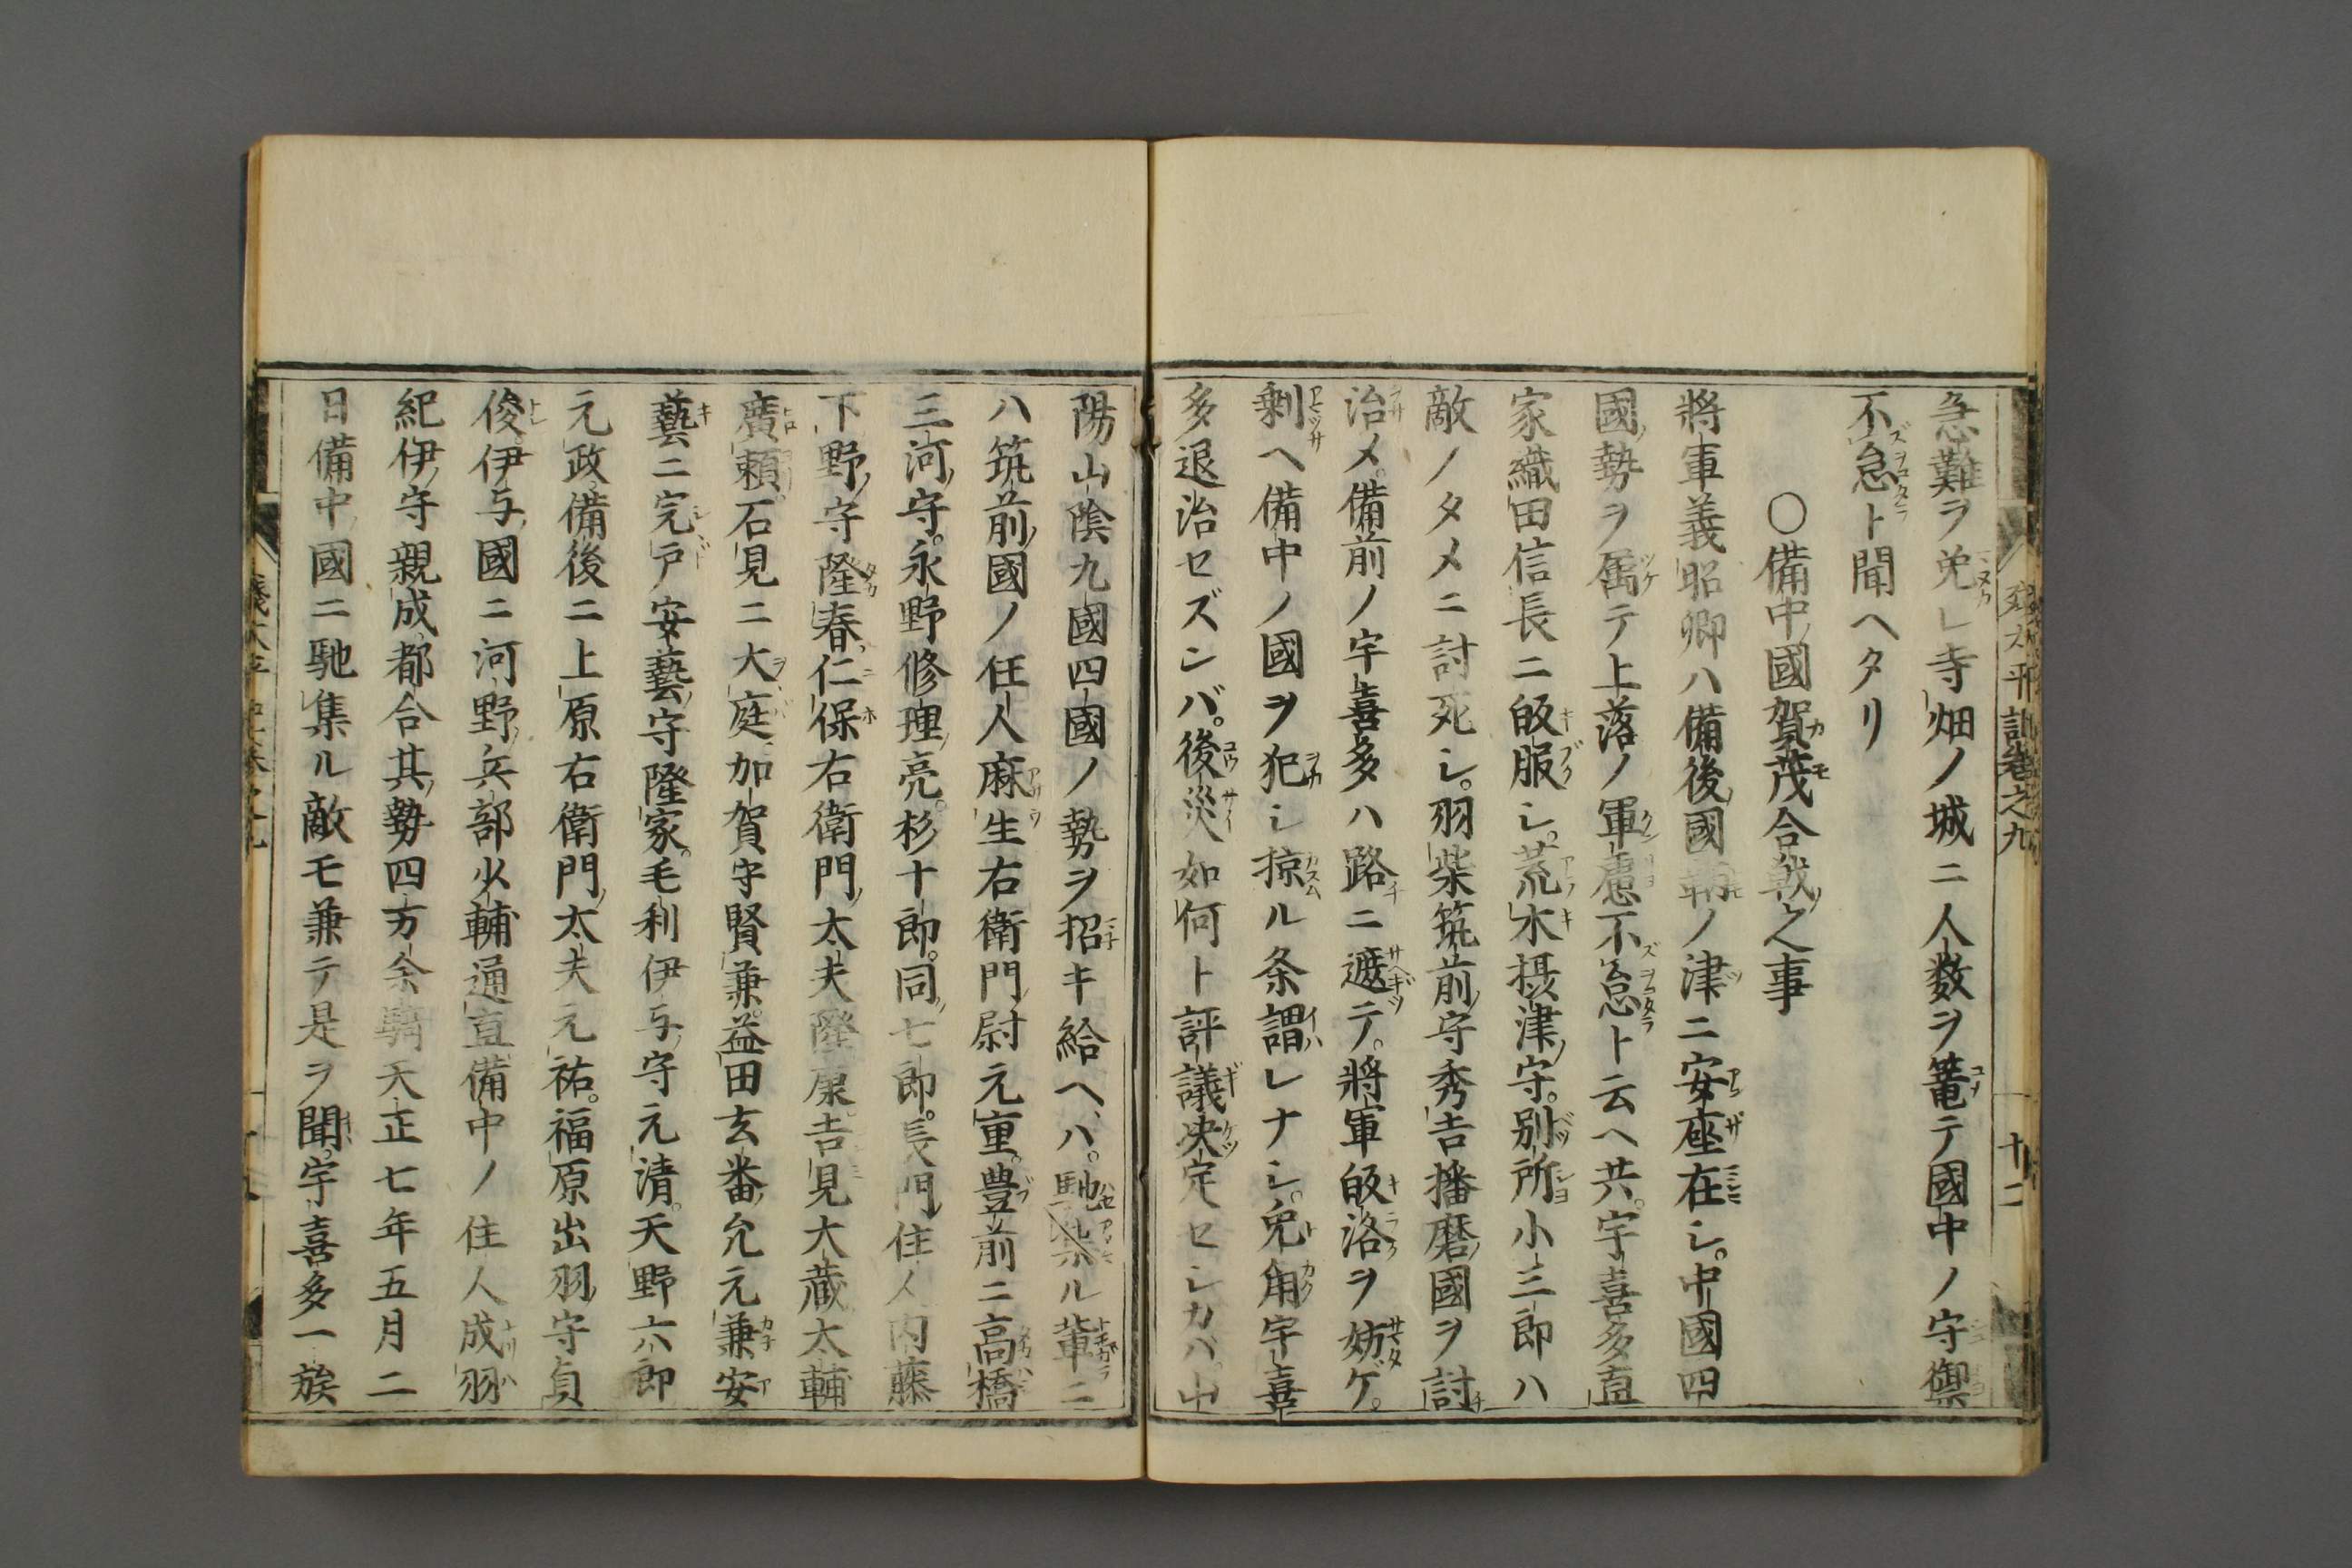 急難ヲ免レ寺畑ノ城ニ人数ヲ篭テ國中ノ守禦
不怠ト聞ヘタリ
〇備中國賀茂合戦之事
將軍義昭卿ハ備後國鞆ノ津ニ安座在シ。中國四
國勢ヲ属テ上落ノ軍慮不怠ト云ヘ共。宇喜多直
家織田信長ニ皈服シ。荒木摂津守。別所小三郎ハ
敵ノタメニ討死シ。羽柴筑前守秀吉播磨國ヲ討
治メ。備前ノ宇喜多ハ路ニ遮テ。將軍皈洛ヲ妨ゲ。
剰ヘ備中ノ國ヲ犯シ掠ル条謂レナシ。兎角宇喜
多退治セズンバ。後災如何ト評議决定セシカバ。山
陽山陰九國四國ノ勢ヲ招キ給ヘハ。馳集ル輩ニ
ハ筑前國ノ住人麻生右衛門尉元重。豊前ニ高橋
三河守。永野修理亮。杉十郎。同七郎。長門住人内藤
下野守隆春。仁保右衛門太夫隆康。吉見大蔵太輔
廣頼。石見ニ大庭加賀守賢兼。益田玄番允元兼安
藝ニ完戸安藝守隆家。毛利伊与守元清。天野六郎
元政備後ニ上原右衛門太夫元祐。福原出羽守貞
俊。伊与國ニ河野兵部少輔通直備中ノ住人成羽
紀伊守親成。都合其勢四万余騎天正七年五月二
日備中國ニ馳集ル敵モ兼テ是ヲ聞。宇喜多一族